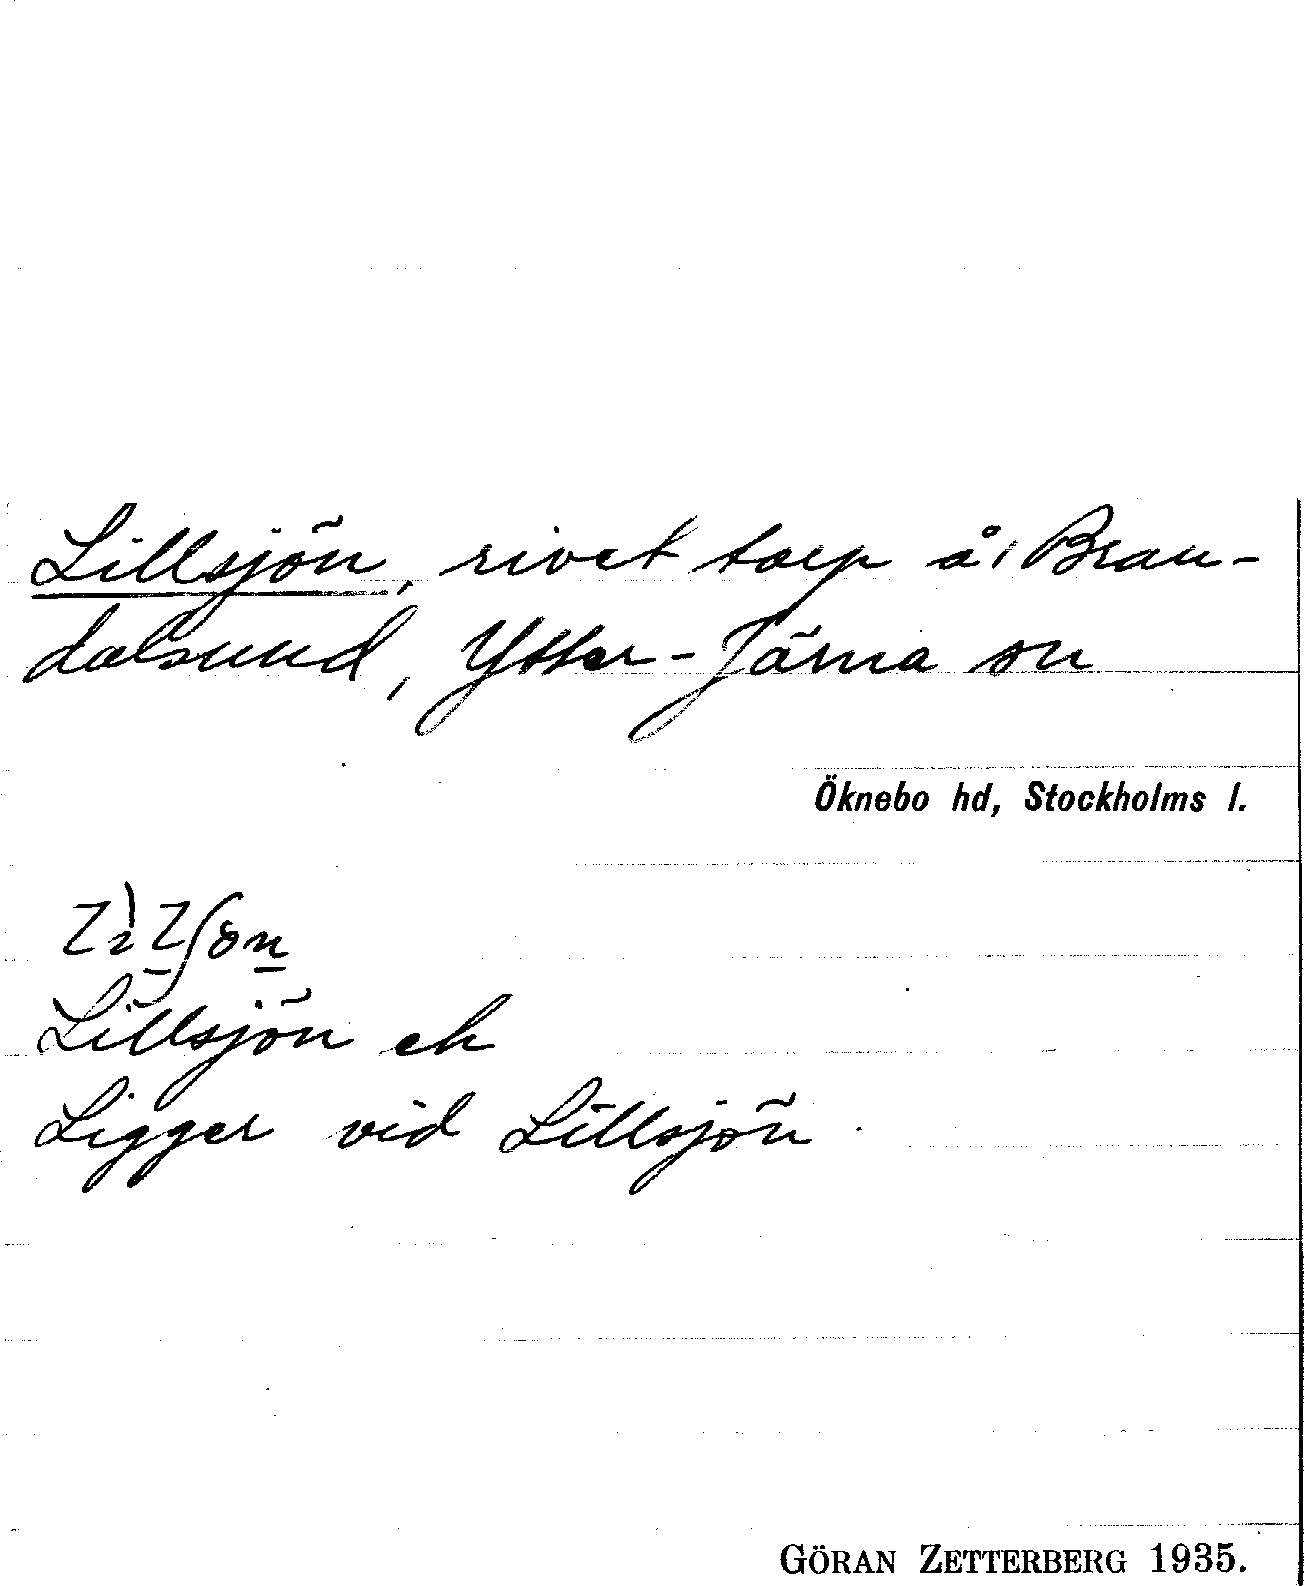 Lillsjön, rivet torp å, Bran-
dalsund, Ytter-Järna sn
Öknebo hd, Stockholms l.
Lillsjön ek
Ligger vid Lillsjön
GÖRAN ZETTERBERG 1935.